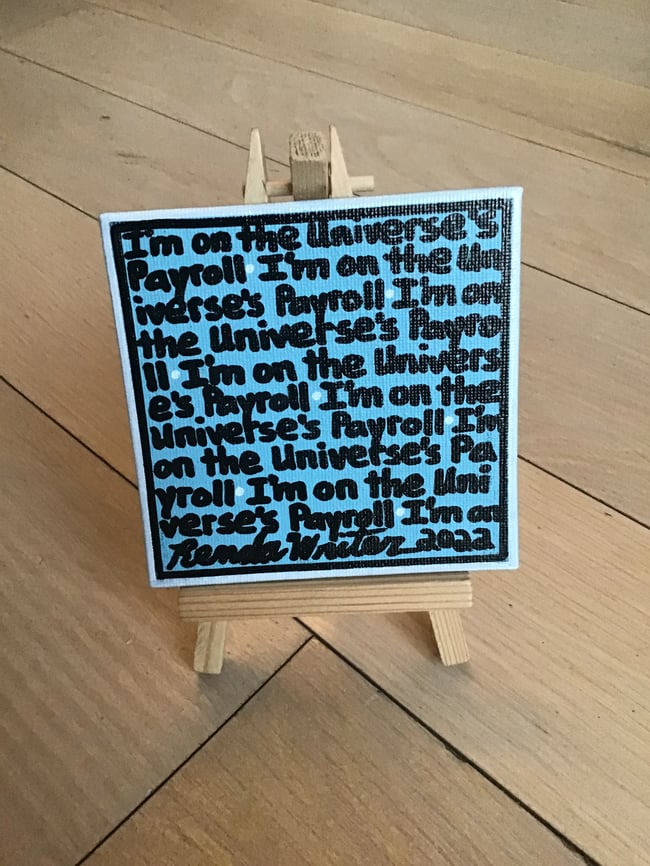 I'm on the Universe's
Payroll • I'm on the Un
iverse's Payroll • I'm on
the Universe's Payro
ll • I'm on the Univers
e's Payroll • I'm on the
Universe's Payroll • I'm
on the Universe's Pa
yroll • I'm on the Uni
verse's Payroll • I'm on
Renda Writer 2022